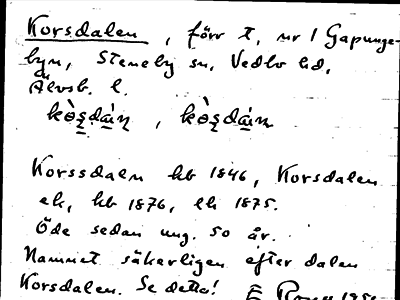 Korsdalen, förr t. nr 1 Gapunge-
byn, Steneby sn, Vedbo hd,
Älvsb. l.
kòʂdáɳ, kòʂdáɳ
Korssdalen hb 1846, Korsdalen
ek, hb 1876, lk 1875.
Öde sedan ung. 50 år.
Namnet säkerligen efter dalen
Korsdalen. Se detta!